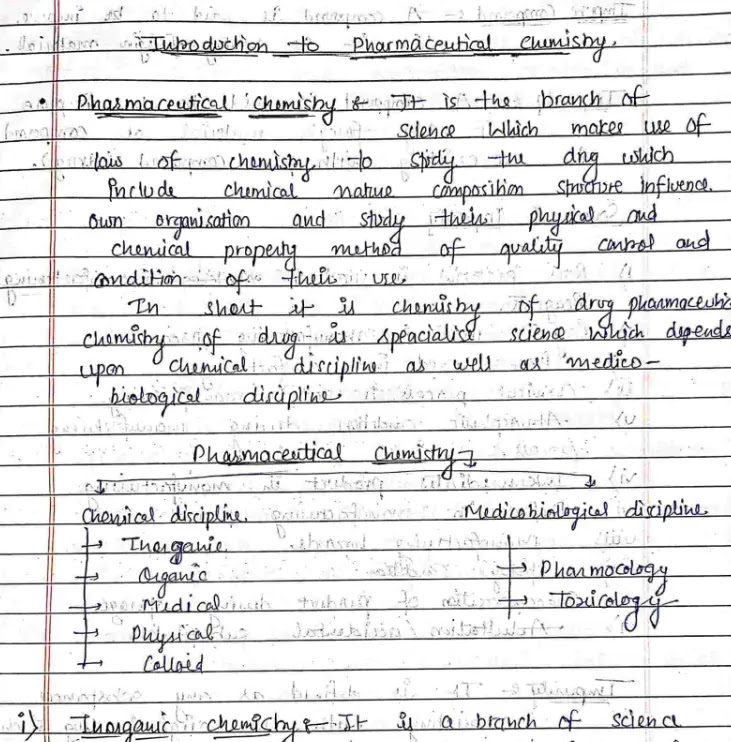 Introduction to Pharmaceutical chemistry.
• Pharmaceutical chemistry :- It is the branch of
science which makes use of
laws of chemistry to study the drug which
include chemical nature composition structure influence.
own organisation and study their physical and
chemical property method of quality control and
condition of their use.
In short it is chemistry of drug pharmaceutic
chemistry of drug is speacialise science which depends
upon chemical discipline as well as medico-
biological discipline.
Pharmaceutical Chemistry
Chemical discipline. Medicobiological discipline
→ Inorganic. → Pharmocology
→ Organic → Toxicology
→ Medical
→ Physical
→ Colloid
i) Inorganic chemistry :- It is a branch of scienc